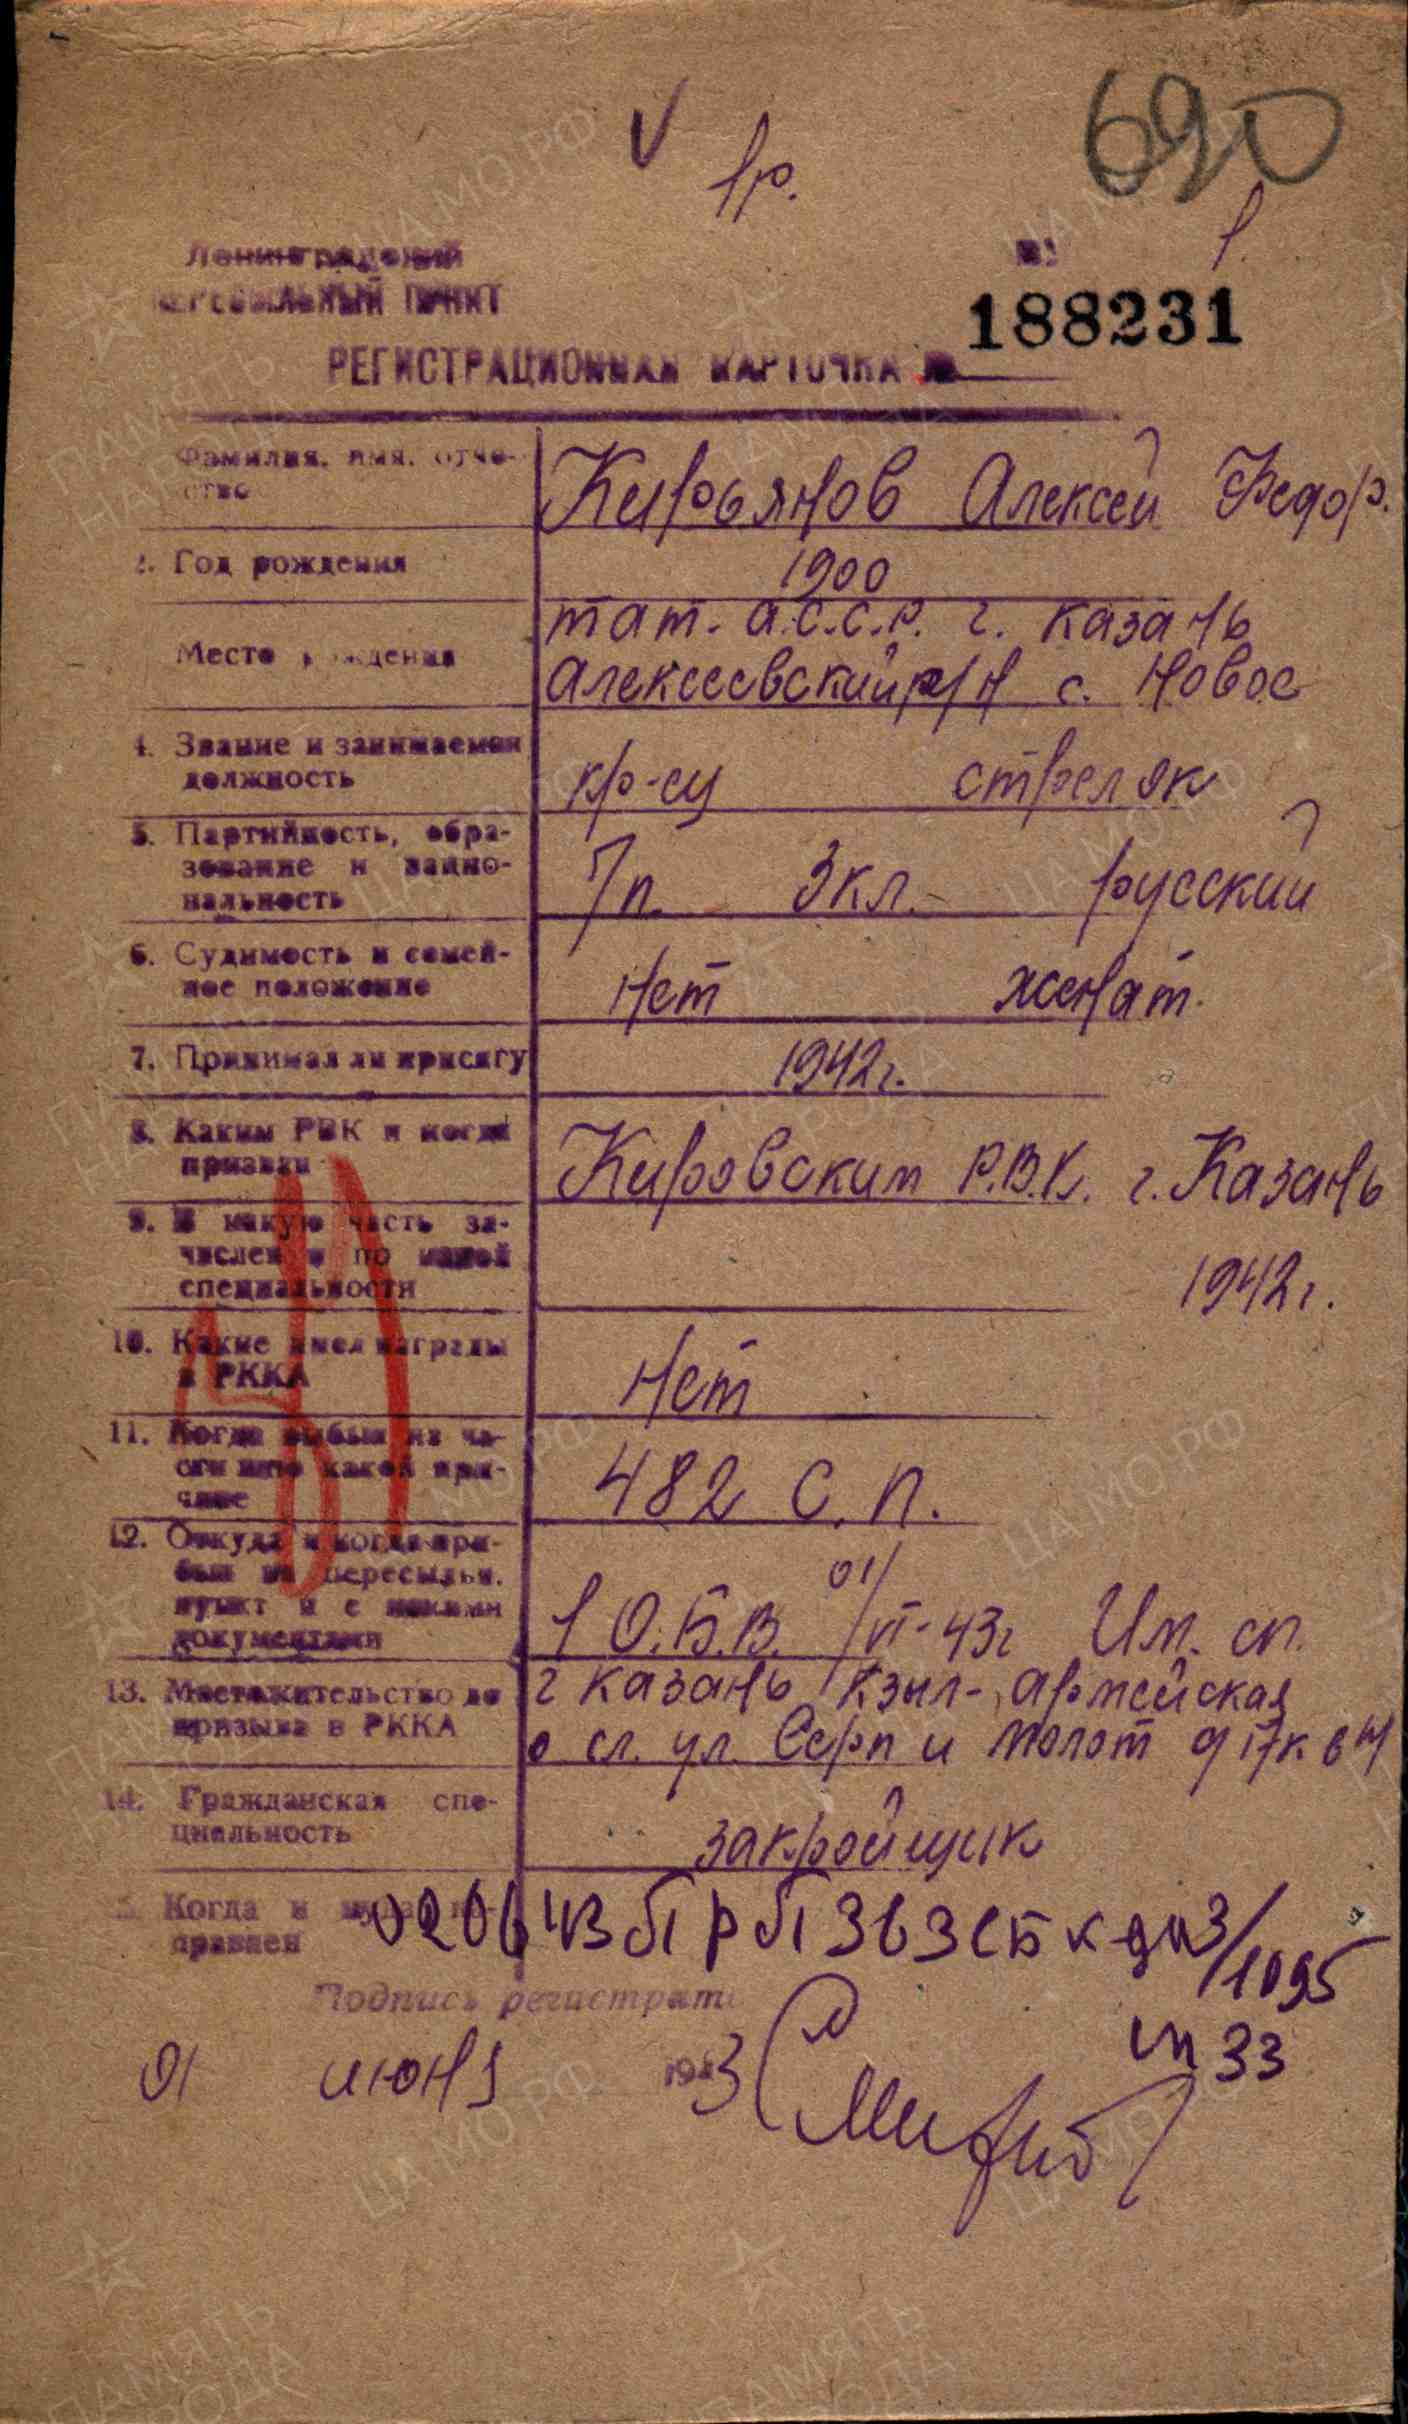 690
гр.
Ленинградский
№
ПЕРЕСЫЛЬНЫЙ ПУНКТ
188231
РЕГИСТРАЦИОННАЯ КАРТОЧКА №
Фамилия, имя, отче-
ство
Кирьянов Алексей Федор.
2. Год рождения
1900
Место рождения
тат. а.с.с.р. г. Казань
Алексеевский р/н с. Новое
4. Звание и занимаемая
должность
кр-ец стрелок
5. Партийность, обра-
зование и нацио-
нальность
б/п. 3 кл. - русский
6. Судимость и семей-
ное положение
нет женат.
7. Принимал ли присягу
1942 г.
8. Каким РВК и когда
призван
Кировским Р.В.К. г. Казань
1942 г.
9. В какую часть за-
числен и по какой
специальности
10. Какие имел награды
в РККА
нет
11. Когда выбыл из ча-
сти и по какой при-
чине
482 С.П.
12. Откуда и когда при-
был на пересыльн.
пункт и с какими
документами
1 О.Б.В. 01/VI-43г Им. сп.
13. Местожительство до
призыва в РККА
г Казань Кзыл-Армейская
о сл. ул. Серп и молот д 17 кв 14
14. Гражданская спе-
циальность
закройщик
15. Когда и куда на-
правлен
020643
1095
33
Подпись регистрат
01 июня 1943
ПАМЯТЬ НАРОДА
ЦА МО РФ